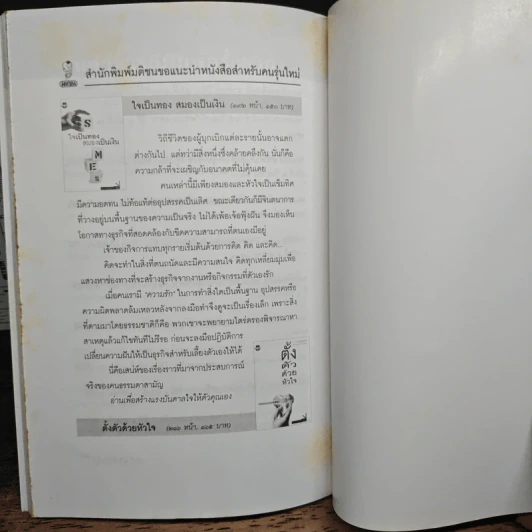 สำนักพิมพ์มติชนขอแนะนำหนังสือสำหรับคนรุ่นใหม่
ใจเป็นทอง สมองเป็นเงิน
หน้า,
บาท)
ใจเป็นทอง
สมองเป็นเงิน
S
M
E
S
วิถีชีวิตของผู้บุกเบิกแต่ละรายนั้นอาจแตก
ต่างกันไป แต่ทว่ามีสิ่งหนึ่งซึ่งคล้ายคลึงกัน นั่นก็คือ
ความกล้าที่จะเผชิญกับอนาคตที่ไม่คุ้นเคย
คนเหล่านี้มีเพียงสมองและหัวใจเป็นเข็มทิศ
มีความอดทน ไม่ท้อแท้ต่ออุปสรรคเป็นเลิศ ขณะเดียวกันก็มีจินตนาการ
ที่วางอยู่บนพื้นฐานของความเป็นจริง ไม่ได้เพ้อเจ้อฟุ้งฝัน จึงมองเห็น
โอกาสทางธุรกิจที่สอดคล้องกับขีดความสามารถที่ตนเองมีอยู่
เจ้าของกิจการแทบทุกรายเริ่มต้นด้วยการคิด คิด และคิด...
คิดจะทำในสิ่งที่ตนถนัดและมีความสนใจ คิดทุกเหลี่ยมมุมเพื่อ
แสวงหาช่องทางที่จะสร้างธุรกิจจากงานหรือกิจกรรมที่ตัวเองรัก
เมื่อคนเรามี "ความรัก" ในการทำสิ่งใดเป็นพื้นฐาน อุปสรรคหรือ
ความผิดพลาดล้มเหลวหลังจากลงมือทำจึงดูจะเป็นเรื่องเล็ก เพราะสิ่ง
ที่ตามมาโดยธรรมชาติก็คือ พวกเขาจะพยายามไตร่ตรองพิจารณาหา
สาเหตุแล้วแก้ไขทันทีไม่รีรอ ก่อนจะลงมือปฏิบัติการ
เปลี่ยนความฝันให้เป็นธุรกิจสำหรับเลี้ยงตัวเองให้ได้
นี่คือเสน่ห์ของเรื่องราวที่มาจากประสบการณ์
จริงของคนธรรมดาสามัญ
อ่านเพื่อสร้างแรงบันดาลใจให้ตัวคุณเอง
ตั้ง
ตัว
ด้วย
หัวใจ
ตั้งตัวด้วยหัวใจ
หน้า,
บาท)